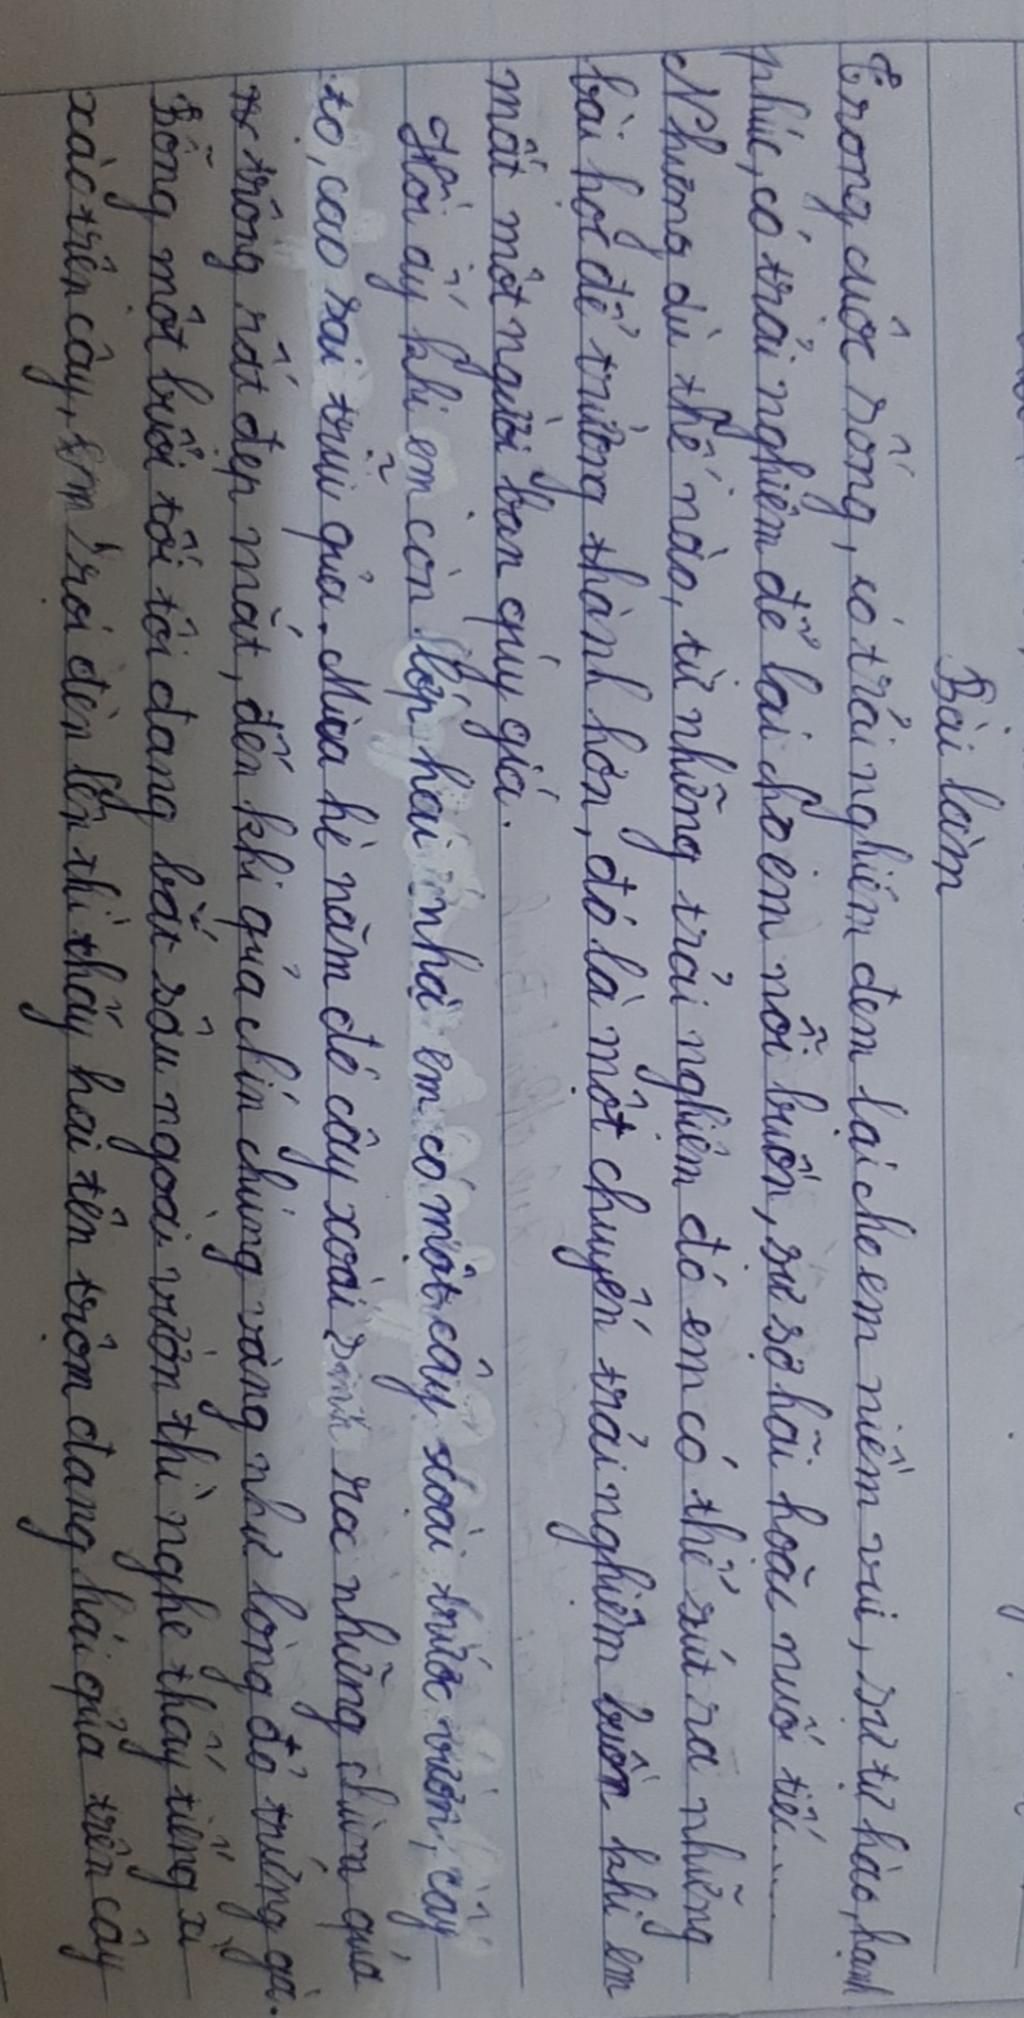 Bài làm
Trong cuộc sống, có trải nghiệm đem lại cho em niềm vui, sự tự hào, hạnh
phúc, có trải nghiệm để lại cho em nỗi buồn, sự sợ hãi hoặc nuối tiếc....
Nhưng dù thế nào, từ những trải nghiệm đó em có thể rút ra những
bài học để trưởng thành hơn, đó là một chuyến trải nghiệm buồn khi em
mất một người bạn quý giá.
Hồi ấy khi em còn lớp hai nhà em có một cây xoài trước vườn, cây
to, cao sai trĩu quả. Mùa hè năm đó cây xoài sinh ra những chùm quả
trông rất đẹp mắt, đến khi quả chín chúng vàng như lòng đỏ trứng gà.
Bỗng một buổi tối tôi đang bắt sâu ngoài vườn thì nghe thấy tiếng xì
xào trên cây, em rọi đèn lên thì thấy hai tên trộm đang hái quả trên cây